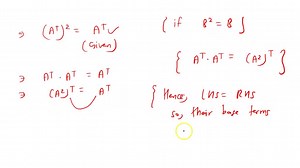 ⇒ (Aᵀ)² = Aᵀ ✓
(Given)
⇒ Aᵀ · Aᵀ = Aᵀ
⇒ (A²)ᵀ = Aᵀ
( if B² = B )
{ Aᵀ · Aᵀ = (A²)ᵀ }
{ Hence, LHS = RHS
so, their base terms